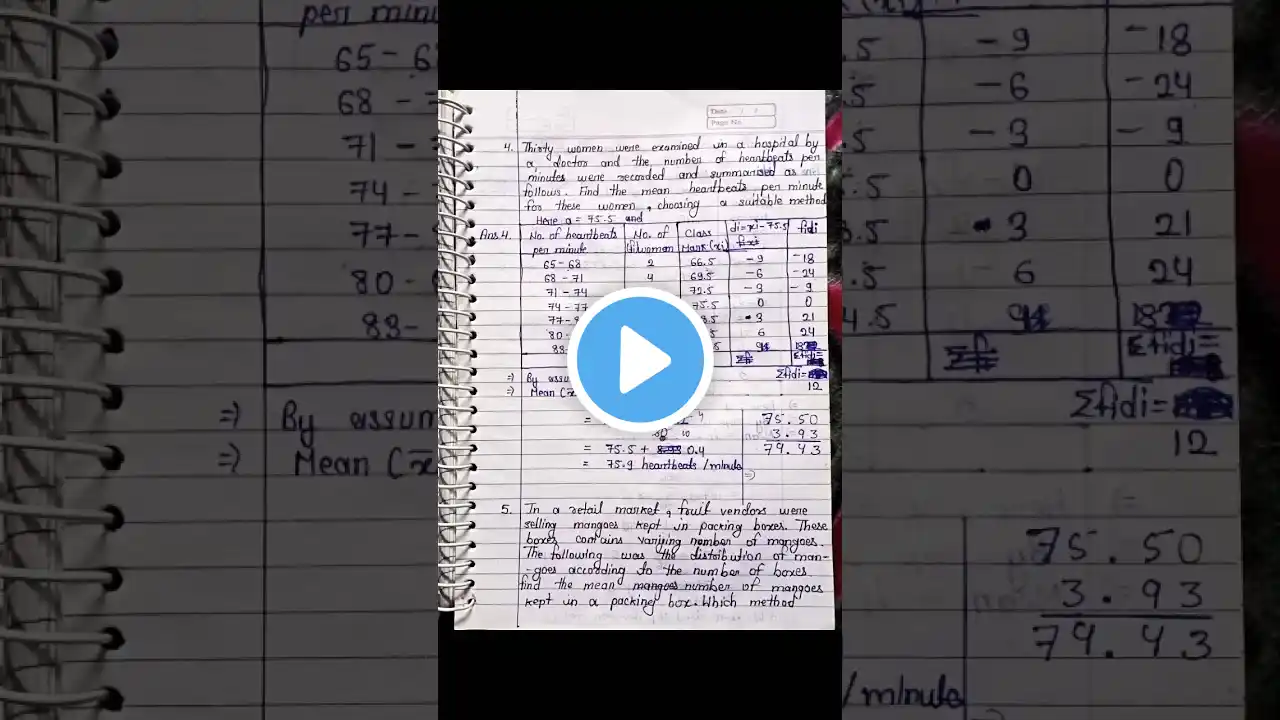 Date / /
Page No.
4. Thirty women were examined in a hospital by
a doctor and the number of heartbeats per
minutes were recorded and summarised as
follows. Find the mean heartbeats per minute
for these women, choosing a suitable method
Here a = 75.5 and
Ans.4. No. of heartbeats No. of Class di=xi-75.5 fidi
per minute women Mark(xi)
65-68 2 66.5 -9 -18
68-71 4 69.5 -6 -24
71-74 72.5 -3 -9
74-77 75.5 0 0
77- 8.5 3 21
80- .5 6 24
83- 9 18
Σfidi=
Σfidi=
⇒ By assum 12
⇒ Mean (x̄
= 75.50
3.93
79.43
= 75.5 + 0.4
= 75.9 heartbeats /minute
⇒
5. In a retail market, fruit vendors were
selling mangoes kept in packing boxes. These
boxes contains varying number of mangoes.
The following was the distribution of man-
-goes according to the number of boxes.
find the mean mangoes number of mangoes
kept in a packing box. Which method
per minu
65-6
68-
71-
74-
77-
80-
83-
⇒ By assum
⇒ Mean (x̄
.5 -9 -18
.5 -6 -24
.5 -3 -9
.5 0 0
8.5 3 21
.5 6 24
4.5 9 18
Σfidi=
Σfidi=
12
75.50
3.93
79.43
/minute